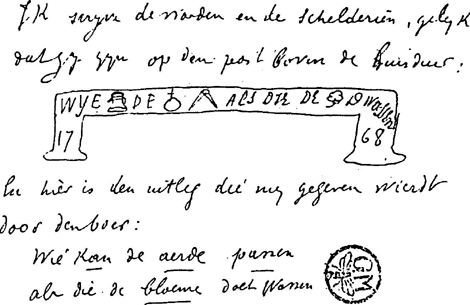 Ik schryve de woorden en de schelderiën, gelyk
dat zy zyn op den post boven de huisdeur:
WYE DE ALS DIE DE D Wassen
17 68
En hier is den uitleg dié my gegeven wierdt
door den boer:
Wié kan de aerde passen
als die de bloeme doet wassen
GM